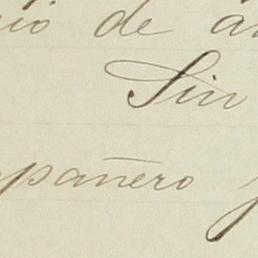 io de a
Sin
pañero y